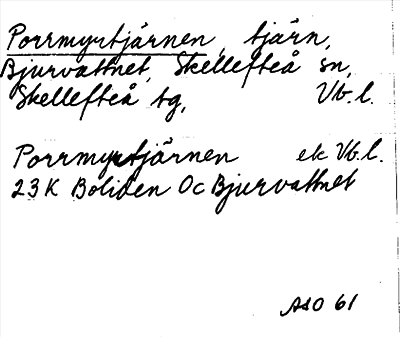 Porrmyrtjärnen, tjärn,
Bjurvattnet, Skellefteå sn,
Skellefteå tg, Vb. l.
Porrmyrtjärnen ek Vb. l.
23 K Boliden Oc Bjurvattnet
ASO 61